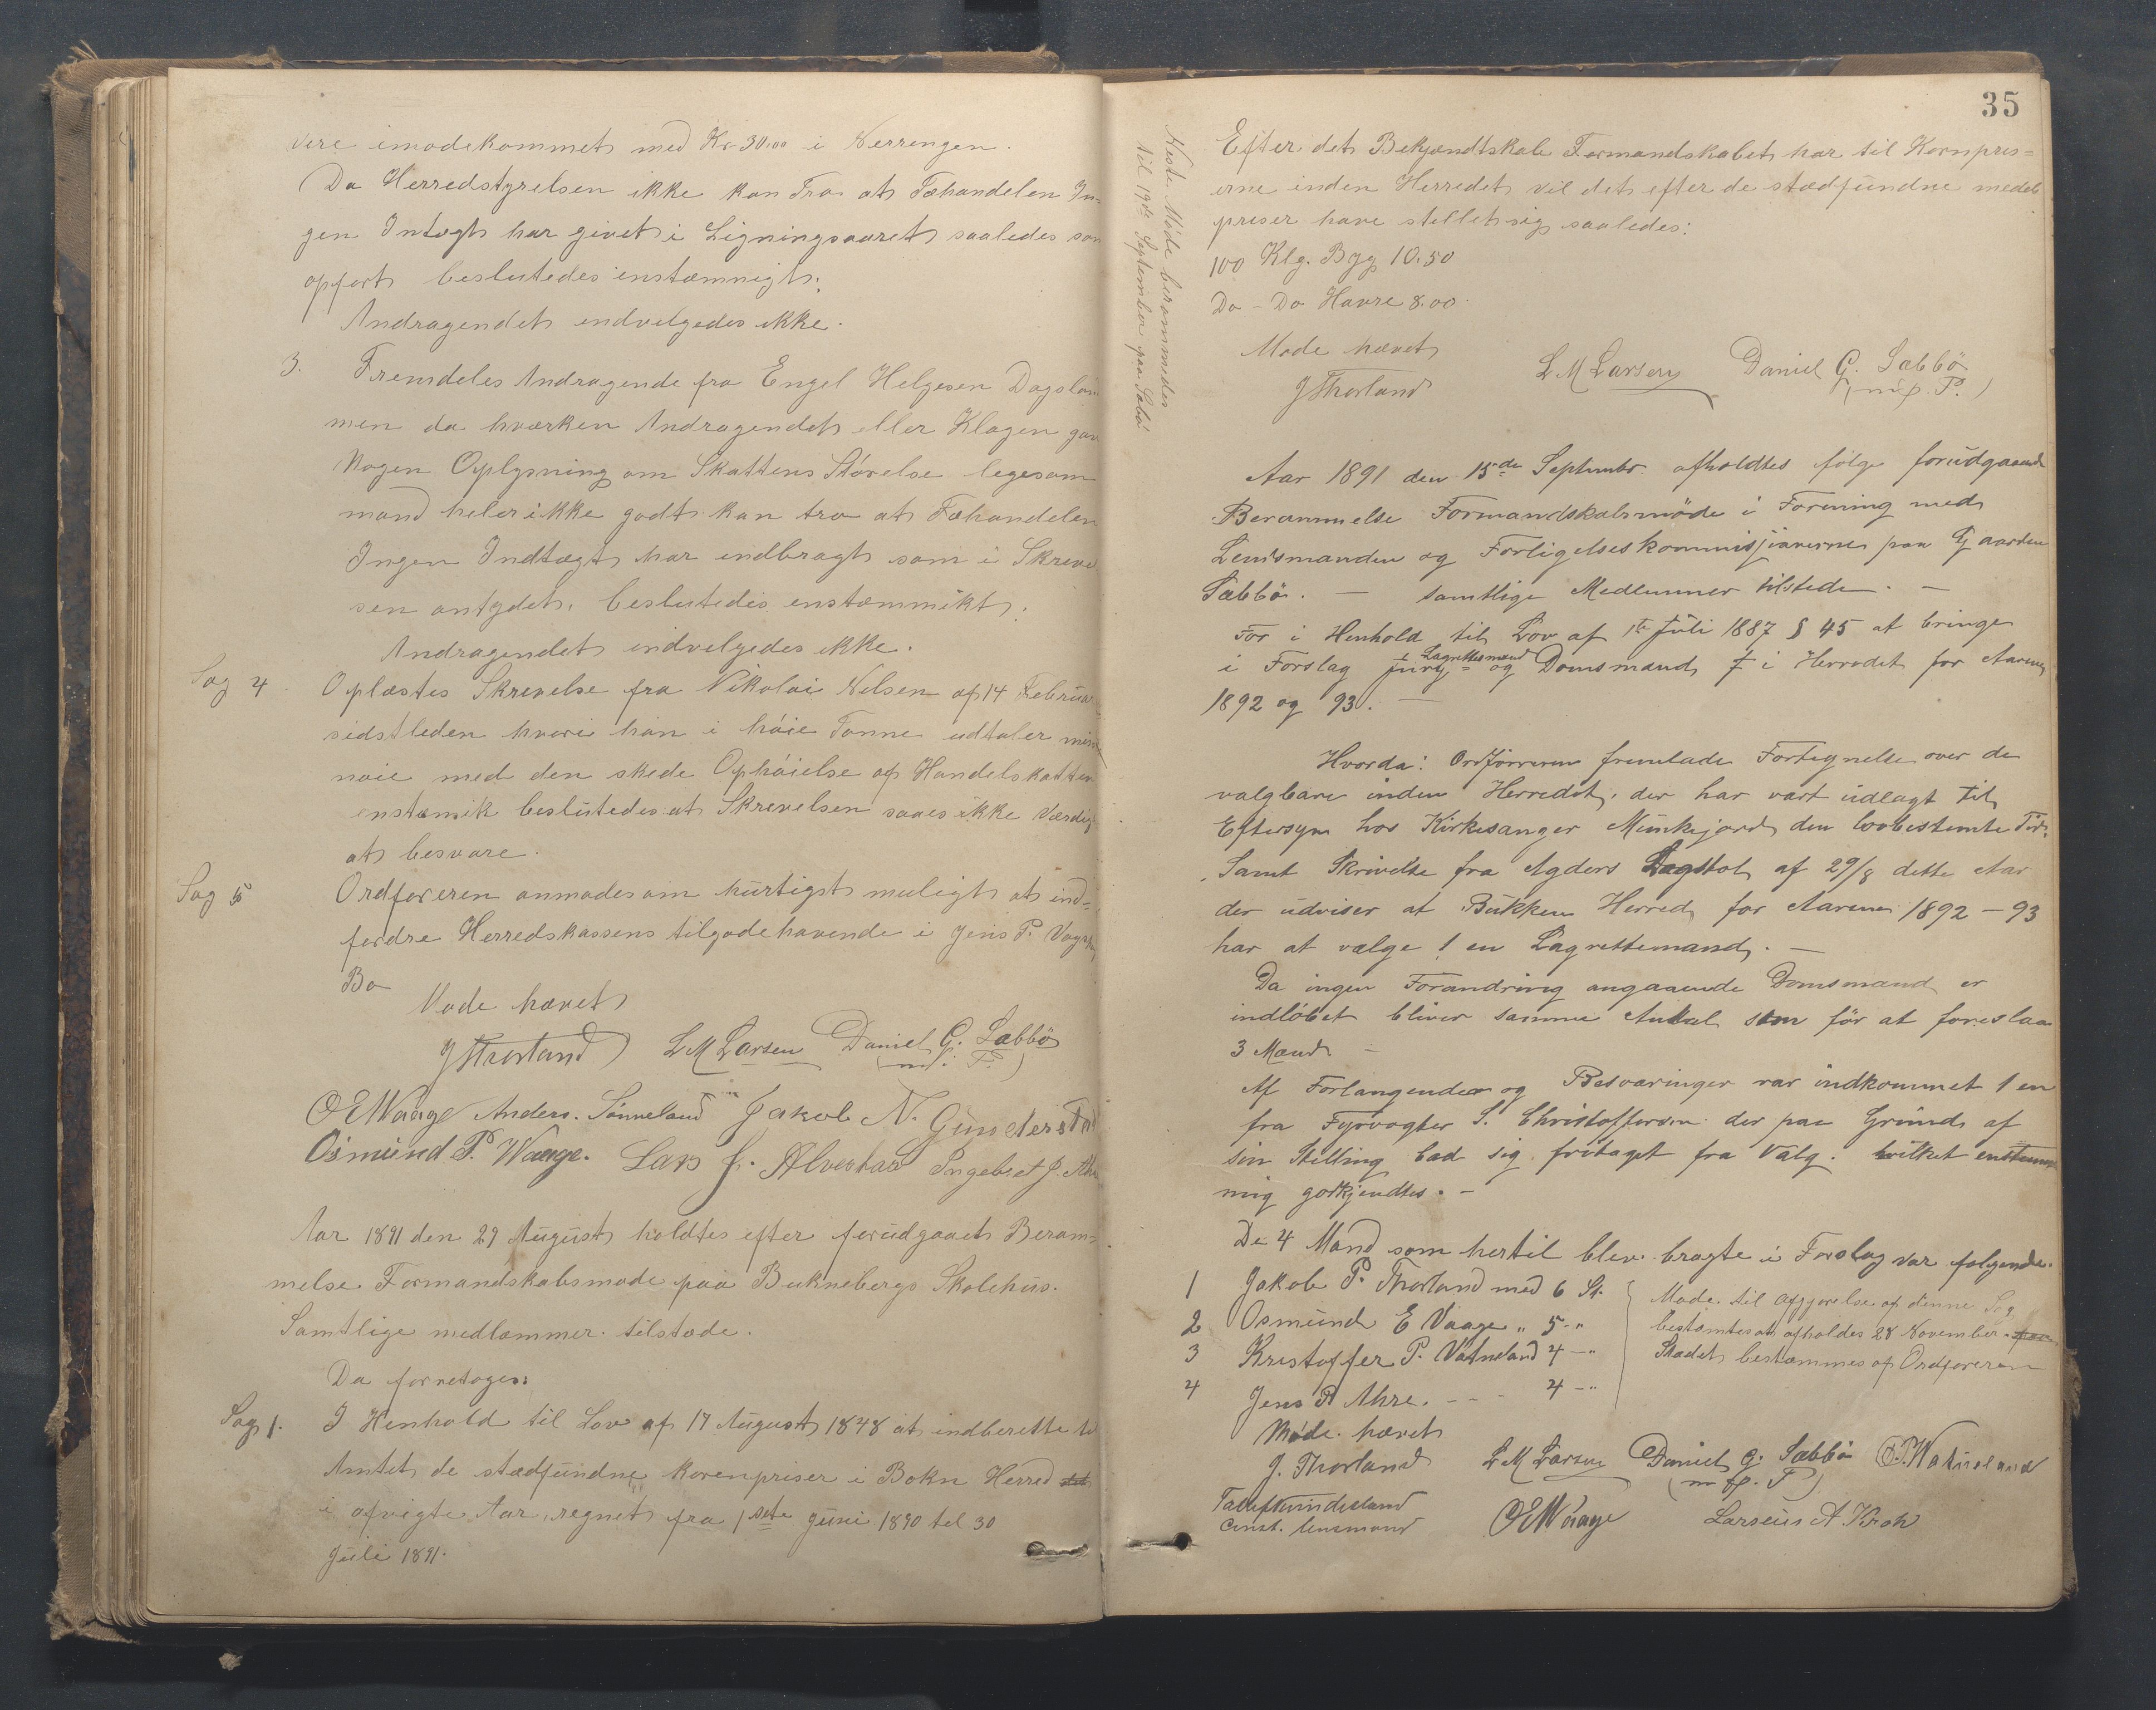 vere imødekommet med Kr 30.00 i Nerrengen.
Da Herredstyrelsen ikke kan Tro at Fæhandelen In-
gen Intægt har givet i Ligningsaaret saaledes som
opført besluttedes enstæmmigt:
Andragendet indvelgedes ikke.
3. Fremdeles Andragende fra Engel Helgesen Dagsland
men da hværken Andragendet eller Klagen gav
Nogen Oplysning om Skattens Størelse legesom
mand heler ikke godt kan tro at Fæhandelen
Ingen Indtægt har indbragt som i Skrevel
sen antydet, beslutedes enstæmmikt:
Andragendet indvelgedes ikke.
Sag 4 Oplæstes Skrevelse fra Nikolai Nilsen af 14 Februar
sidstleden hvori han i høie Tonne udtaler mis
nøie med den skede Ophøielse af Handelskatten
enstæmik beslutedes at Skrevelsen saaes ikke Værdig
at besvare.
Sag 5 Ordføreren anmodes om hurtigst muligt at ind-
fordre Herredskassens tilgodehavende i Jens P. Vaage
Bo
Møde hævet
J Thorland L M Larsen Daniel G. Sæbbø
(m f. P.)
O E Waage Anders. Sønneland Jakob N. Gundersta
Osmund P. Waage. Lars J. Alvestad Ingebret J. Ahr
Aar 1891 den 29 August holdtes efter forudgaaet Beram-
melse Formandskabsmøde paa Buknebergs Skolehus.
Samtlige medlæmmer tilstæde.
Da forretoges:
Sag 1. I Henhold til Lov af 17 August 1848 at indberette til
Amtet de stædfundne kornpriser i Bokn Herred
i afvigte Aar, regnet fra 1ste Juni 1890 til 30
Juli 1891.
35
Neste Møde berammedes
til 19de September paa Sæbø
Efter det Bekjændtskab Formandskabet har til Kornpris-
erne inden Herredet vil det efter de stædfundne meddel
priser have stillet sig saaledes:
100 Klg. Byg 10.50
Do - Do Havre 8.00.
Møde hævet
J Thorland L M Larsen Daniel G. Sæbbø
(m f. P.)
Aar 1891 den 15de Septembr. afholdtes følge forudgaaende
Berammelse Formandskabsmøde i Forening med
Lensmanden og Forligelseskommisjonærerne paa Gaarden
Sæbbø. — samtlige Medlemmer tilstede. —
For i Henhold til Lov af 1te Juli 1887 § 45 at bringe
i Forslag jury- Lagrettesmænd og Domsmænd i Herredet for Aarene
1892 og 93. —
Hvorda: Ordføreren fremlade Fortegnelse over de
valgbare inden Herredet, der har vært udlagt til
Eftersyn hos Kirkesanger Munkejord den lovbestemte Tid,
Samt Skrivelse fra Agders Lagstol af 29/8 dette Aar
der udviser at Bukken Herred for Aarene 1892 - 93
har at vælge 1 en Lagrettemand. —
Da ingen Forandring angaaende Domsmænd er
indløbet bliver samme Antal som før at foreslaa
3 Mænd. —
Af Forlangender og Besværinger var indkommet 1 en
fra Fyrvogter S. Christoffersen der paa Grund af
sin Stilling bad sig fritaget fra Valg. hvilket enstem
mig godkjendtes. -
De 4 Mand som hertil blev bragte i Forslag var følgende.
1 Jakob P. Thorland med 6 St.
2 Osmund E Vaage „ 5 - "
3 Kristoffer P. Vatneland 4 - "
4 Jens P Ahre. - - 4 - "
Møde til afgjørelse af denne Sag
bestæmtes at afholdes 28 November.
Stædet bestæmmes af Ordføreren
Møde hævet
J. Thorland L M Larsen Daniel G. Sæbbø O.P. Watneland
(m f. P)
const. lensmand O E Waage Larseus A. Kroh